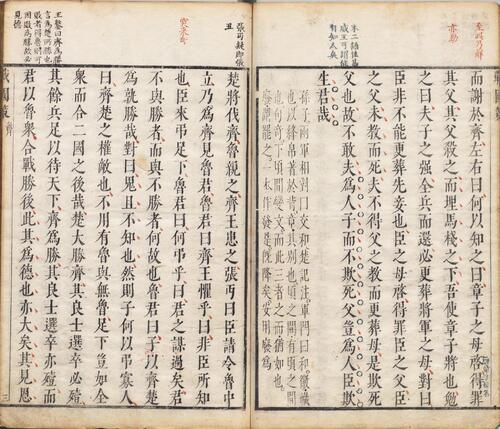 至此乃解
亦勁
而謝於齊左右曰何以知之曰章子之母啓得罪
其父其父殺之而埋馬棧之下吾使章子將也勉
之曰夫子之强全兵而還必更葬將軍之母對曰
臣非不能更葬先妾也臣之母啓得罪臣之父臣
之父未教而死夫不得父之教而更葬母是欺死
父也故不敢夫爲人子而不欺死父豈爲人臣欺
生君哉
孫子兩軍相對曰交和楚記注軍門曰和徽幟
也以絳帛著於背章其別也頃之間有頃之間
戰國策 齊 三
張丏疑即張
丑
楚將伐齊魯親之齊王患之張丏曰臣請令魯中
立乃爲齊見魯君魯君曰齊王懼乎曰非臣所知
也臣來弔足下魯君曰何弔乎曰君之謀過矣君
不與勝者而與不勝者何故也魯君曰子以齊楚
爲孰勝哉對曰鬼且不知也然則子何以弔寡人
曰齊楚之權敵也不用有魯與無魯足下豈如全
衆而合二國之後哉楚大勝齊其良士選卒必殪
其餘兵足以待天下齊爲勝其良士選卒亦殪而
君以魯衆合戰勝後此其爲德也亦大矣其見恩
王鏊曰齊爲勝
言爲楚所勝也
敗者得魯則可
因敗爲勝故必
見德